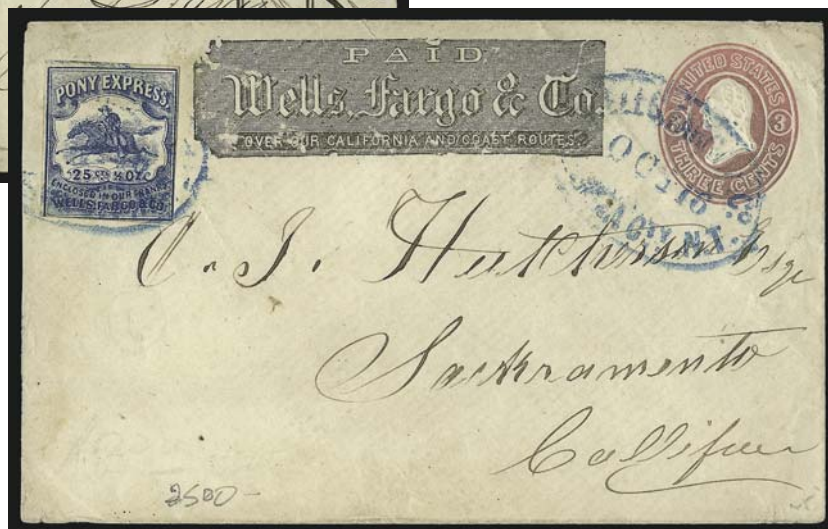 PONY EXPRESS.
25 CTS ½ OZ.
ENCLOSED IN OUR FRANKS
WELLS, FARGO & CO.
PAID
Wells, Fargo & Co.
OVER OUR CALIFORNIA AND COAST ROUTES.
UNITED STATES
3
THREE CENTS
OCT 10
SACM'NT.
C. J. Hutcherson Esqr
Sackramento
Califer
2500-